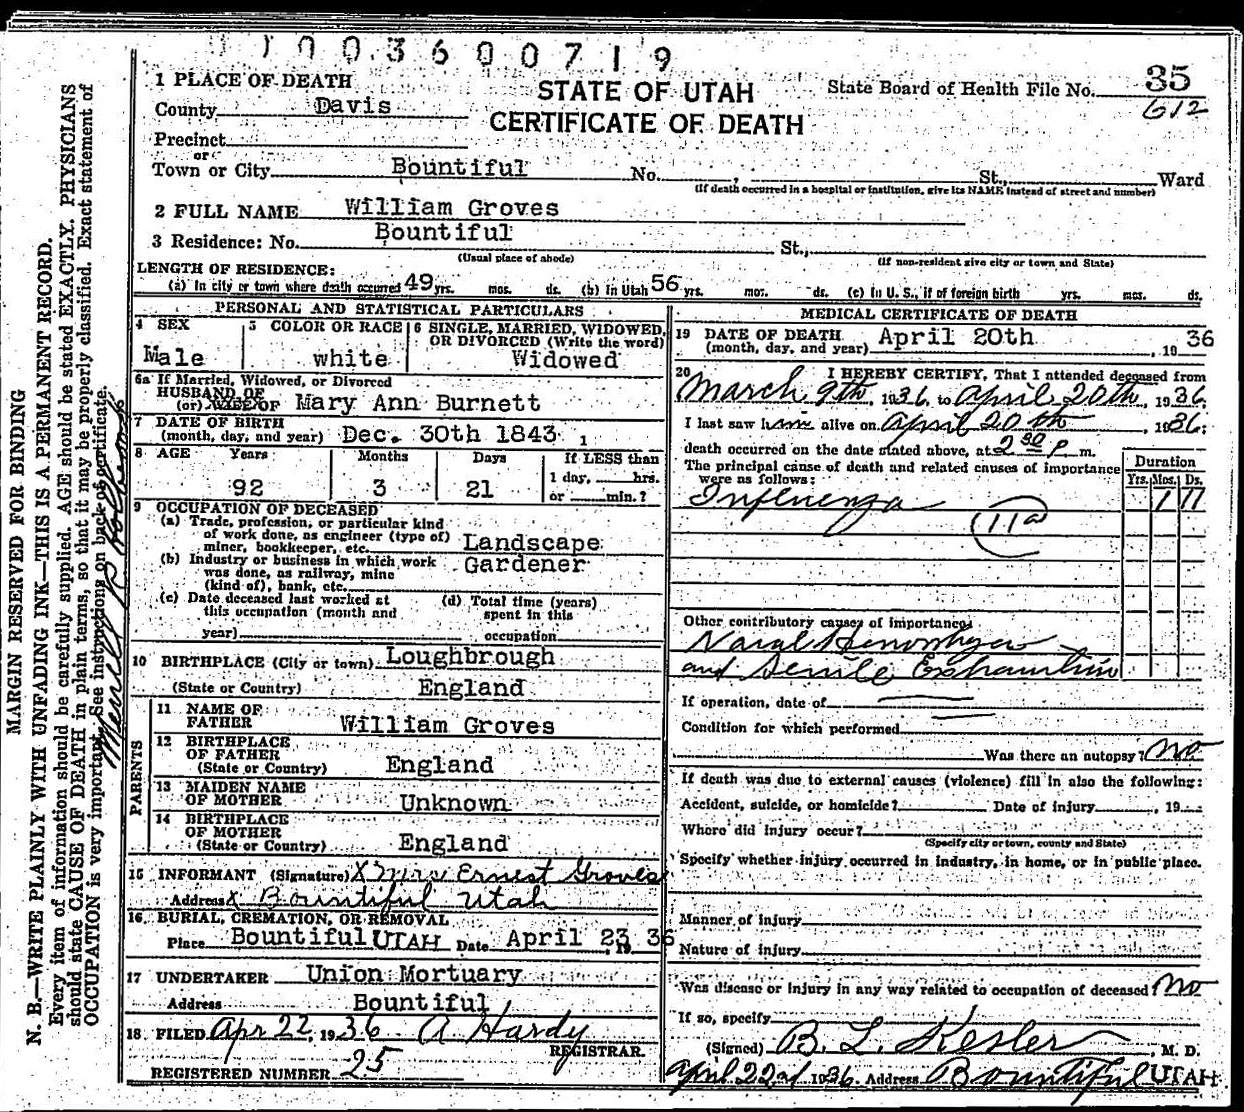 1003600719
1 PLACE OF DEATH
STATE OF UTAH
State Board of Health File No. 35
County Davis
612
CERTIFICATE OF DEATH
Precinct
or
Town or City Bountiful No. , St., Ward
(If death occurred in a hospital or institution, give its NAME instead of street and number)
2 FULL NAME William Groves
3 Residence: No. Bountiful St.,
(Usual place of abode) (If non-resident give city or town and State)
LENGTH OF RESIDENCE:
(a) In city or town where death occurred 49 yrs. mos. ds. (b) In Utah 56 yrs. mos. ds. (c) In U. S., if of foreign birth yrs. mos. ds.
PERSONAL AND STATISTICAL PARTICULARS
4 SEX
Male
5 COLOR OR RACE
white
6 SINGLE, MARRIED, WIDOWED,
OR DIVORCED (Write the word)
Widowed
6a If Married, Widowed, or Divorced
HUSBAND OF
(or) WIFE OF Mary Ann Burnett
7 DATE OF BIRTH
(month, day, and year) Dec. 30th 1843 1
8 AGE Years Months Days If LESS than
1 day, hrs.
92 3 21 or min.?
9 OCCUPATION OF DECEASED
(a) Trade, profession, or particular kind
of work done, as engineer (type of)
miner, bookkeeper, etc. Landscape
(b) Industry or business in which work Gardener
was done, as railway, mine
(kind of), bank, etc.
(c) Date deceased last worked at (d) Total time (years)
this occupation (month and spent in this
year) occupation
10 BIRTHPLACE (City or town) Loughbrough
(State or Country) England
PARENTS
11 NAME OF
FATHER William Groves
12 BIRTHPLACE
OF FATHER
(State or Country) England
13 MAIDEN NAME
OF MOTHER Unknown
14 BIRTHPLACE
OF MOTHER
(State or Country) England
15 INFORMANT (Signature) X Mrs Ernest Groves
Address X Bountiful Utah
16 BURIAL, CREMATION, OR REMOVAL
Place Bountiful UTAH Date April 23, 19 36
17 UNDERTAKER Union Mortuary
Address Bountiful
18 FILED Apr 22, 1936 A Hardy
REGISTRAR.
REGISTERED NUMBER 25
MEDICAL CERTIFICATE OF DEATH
19 DATE OF DEATH April 20th 36
(month, day, and year) , 19
20 I HEREBY CERTIFY, That I attended deceased from
March 9th, 1936, to April 20th, 1936,
I last saw him alive on April 20th, 1936;
death occurred on the date stated above, at 2 30 P m.
The principal cause of death and related causes of importance
were as follows:
Duration
Yrs. Mos. Ds.
Influenza 1 11
(11a)
Other contributory causes of importance:
Nasal Hemorrhage
and Senile Exhaustion
If operation, date of
Condition for which performed
Was there an autopsy? No
If death was due to external causes (violence) fill in also the following:
Accident, suicide, or homicide? Date of injury , 19
Where did injury occur?
(Specify city or town, county and State)
Specify whether injury occurred in industry, in home, or in public place.
Manner of injury
Nature of injury
Was disease or injury in any way related to occupation of deceased? No
If so, specify
(Signed) B. L. Kesler , M. D.
April 22nd 1936. Address Bountiful UTAH
MARGIN RESERVED FOR BINDING
N. B.—WRITE PLAINLY WITH UNFADING INK—THIS IS A PERMANENT RECORD.
Every item of information should be carefully supplied. AGE should be stated EXACTLY. PHYSICIANS
should state CAUSE OF DEATH in plain terms, so that it may be properly classified. Exact statement of
OCCUPATION is very important. See instructions on back of certificate.
Merrill